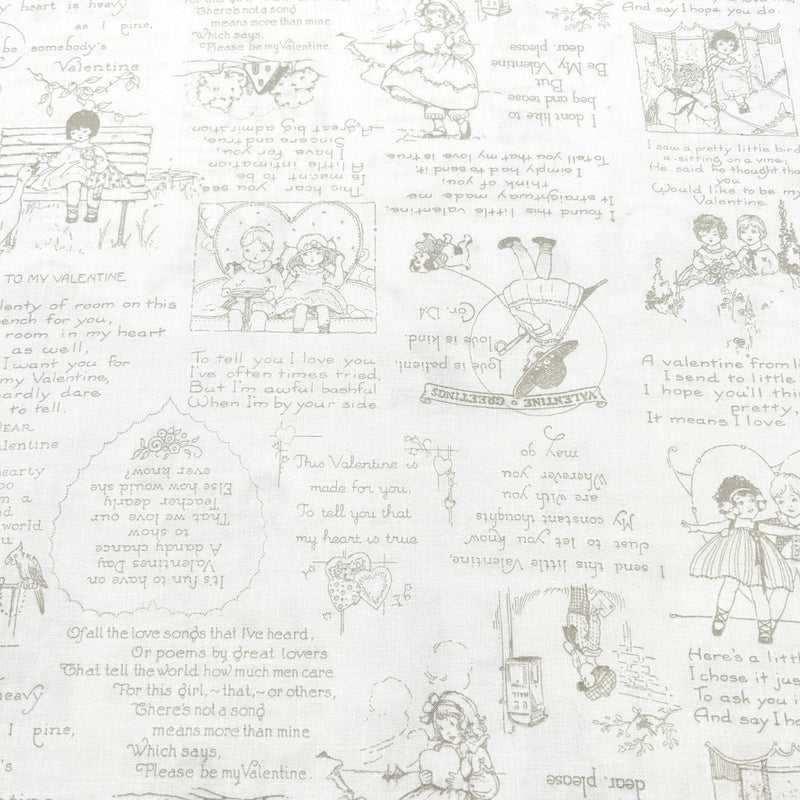 y heart is heavy
as I pine,
be somebody's
Valentine
There's not a song
means more than mine
Which says,
Please be my Valentine.
I don't like to
beg and tease
But
Be My Valentine
dear, please
And say I hope you do.
I saw a pretty little bird
a-sitting on a vine;
He said he thought tha
you
Would like to be m
Valentine.
This heart, you see,
is meant to be
A little intimation
I have for you,
Sincere and true,
A great big admiration
I found this little valentine,
It straightway made me
think of you,
I simply had to send it.
To tell you that my love is true.
TO MY VALENTINE
lenty of room on this
ench for you,
room in my heart
as well,
I want you for
my Valentine,
ardly dare
to tell.
To tell you I love you
I've often times tried,
But I'm awful bashful
When I'm by your side.
Love is patient,
love is kind.
Cor. 13:4
VALENTINE GREETINGS
A valentine from li
I send to little
I hope you'll thin
pretty,
It means I love
DEAR
alentine
hearty
oo
m a
nd
world
ou
It's fun to have on
Valentines Day
A dandy chance
to show
That we love our
Teacher dearly
Else how would she
ever know?
This Valentine is
made for you.
To tell you that
my heart is true
I send this little Valentine,
Just to let you know
My constant thoughts
are with you
Wherever you
may go
Of all the love songs that I've heard,
Or poems by great lovers
That tell the world how much men care
For this girl,~that,~or others,
There's not a song
means more than mine
Which says,
Please be my Valentine.
U.S
MAIL
Here's a littl
I chose it jus
To ask you i
And say I ho
heavy
I pine,
's
dear, please